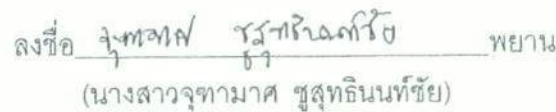 ลงชื่อ จุฑามาศ ชูสุทธินนท์ชัย พยาน
(นางสาวจุฑามาศ ชูสุทธินนท์ชัย)